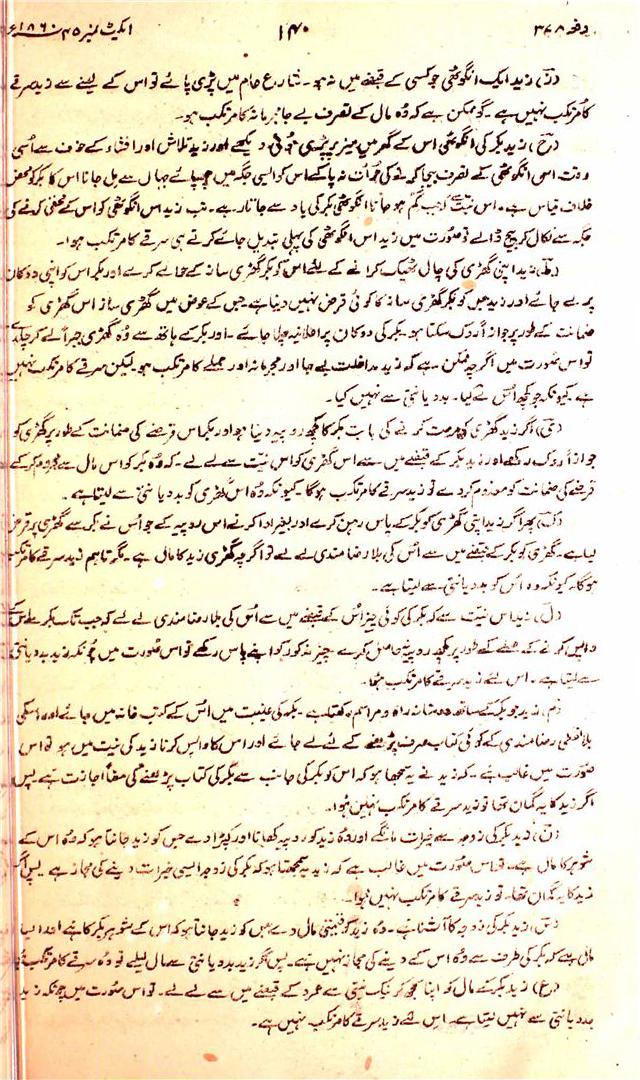 دفعہ ۳۷۸
۱۴۰
ایکٹ نمبر ۴۵ ۱۸۶۰ء
(ز) زید ایک انگوٹھی جو کسی کے قبضے میں نہ ہو۔ شارع عام میں پڑی پائے تو اس کے لینے سے زید سرقے
کا مرتکب نہیں ہے۔ گو ممکن ہے کہ وہ مال کے تصرف بے جا مجرمانہ کا مرتکب ہو۔
(ح) زید بکر کی انگوٹھی اس کے گھر میں میز پر پڑی ہوئی دیکھے اور زید تلاش اور افشاء کے خوف سے اسی
وقت اس انگوٹھی کے تصرف بیجا کرنے کی جرأت نہ پا کے اس کو ایسی جگہ میں چھپائے جہاں سے مل جانا اس کا بکر کو محض
خلاف قیاس ہے۔ اس نیت سے کہ جب گم ہو جانا انگوٹھی بکر کی یاد سے جاتا رہے۔ تب زید اس انگوٹھی کو اس کے مخفی کرنے کی
جگہ سے نکال کر بیچ ڈالے تو صورت میں زید اس انگوٹھی کی پہلی تبدیل جائے کرتے ہی سرقے کا مرتکب ہوا۔
(ط) زید اپنی گھڑی کی چال ٹھیک کرانے کے لئے اس کو بکر گھڑی ساز کے حوالے کرے اور بکر اس کو اپنی دوکان
پر لے جائے اور زید جس کو بکر گھڑی ساز کا کوئی قرض نہیں دینا ہے جس کے عوض میں گھڑی ساز اس گھڑی کو
ضمانت کے طور پر جوازاً روک سکتا ہو۔ بکر کی دوکان پر اعلانیہ چلا جائے۔ اور بکر کے ہاتھ سے وہ گھڑی جبراً لے کر چلا جائے
تو اس صورت میں اگرچہ ممکن ہے کہ زید مداخلت بے جا اور مجرمانہ اور حملے کا مرتکب ہو لیکن سرقے کا مرتکب نہیں
ہے کیونکہ جو کچھ اس نے کیا۔ بددیانتی سے نہیں کیا۔
(ی) اگر زید گھڑی کو مرمت کرنے کی بابت بکر کا کچھ روپیہ دینا ہو اور بکر اس قرضے کی ضمانت کے طور پر گھڑی کو
جوازاً روک رکھے اور زید بکر کے قبضے میں سے اس گھڑی کو اس نیت سے لے لے۔ کہ وہ بکر کو اس مال سے محروم کر کے
قرضے کی ضمانت کو معدوم کر دے تو زید سرقے کا مرتکب ہوگا۔ کیونکہ وہ اس گھڑی کو بددیانتی سے لیتا ہے۔
(ک) پھر اگر زید اپنی گھڑی کو بکر کے پاس رہن کرے اور بغیر ادا کرنے اس روپیہ کے جو اس نے بکر سے گھڑی پر قرض
لیا ہے۔ گھڑی کو بکر کے قبضے میں سے اس کی بلا رضامندی لے لے تو اگرچہ گھڑی زید کا مال ہے۔ مگر تاہم زید سرقے کا مرتکب
ہوگا۔ کیونکہ وہ اس کو بددیانتی سے لیتا ہے۔
(ل) زید اس نیت سے کہ بکر کی کوئی چیز اس کے قبضے میں سے اس کی بلا رضامندی لے لے کہ جب تک بکر سے اس کے
واپس کرنے کے صلے کے طور پر کچھ روپیہ حاصل کرے۔ چیز مذکور کو اپنے پاس رکھے تو اس صورت میں چونکہ زید بددیانتی
سے لیتا ہے۔ اس لئے زید سرقے کا مرتکب ہوا۔
(م) زید جو بکر کے ساتھ دوستانہ راہ و مراسم رکھتا ہے۔ بکر کی غیبت میں اس کے کتب خانہ میں جائے اور اس کی
بلا لفظی رضامندی کے کوئی کتاب صرف پڑھنے کے لئے لے جائے اور اس کا واپس کرنا زید کی نیت میں ہو تو اس
صورت میں غالب ہے۔ کہ زید نے یہ سمجھا ہو کہ اس کو بکر کی جانب سے بکر کی کتاب پڑھنے کی معناً اجازت ہے پس
اگر زید کا یہ گمان تھا تو زید سرقے کا مرتکب نہیں ہوا۔
(ن) زید بکر کی زوجہ سے خیرات مانگے اور وہ زید کو روپیہ کھانا اور کپڑا دے جس کو زید جانتا ہو کہ وہ اس کے
شوہر کا مال ہے۔ تو اس صورت میں غالب ہے کہ زید یہ سمجھتا ہو کہ بکر کی زوجہ ایسی خیرات دینے کی مجاز ہے پس اگر
زید کا یہ گمان تھا۔ تو زید سرقے کا مرتکب نہیں ہوا۔
(س) زید بکر کی زوجہ کا آشنا ہے۔ وہ زید کو قیمتی مال دے جس کو زید جانتا ہو کہ اس کے شوہر بکر کا ہے اور ایسا
مال ہے کہ بکر کی طرف سے وہ اس کے دینے کی مجاز نہیں ہے۔ پس اگر زید بددیانتی سے مال لیلے تو وہ سرقے کا مرتکب ہوگا
(ع) زید بکر کے مال کو اپنا سمجھ کر نیک نیتی سے عمرو کے قبضے میں سے لے لے۔ تو اس صورت میں چونکہ زید
بددیانتی سے نہیں لیتا ہے۔ اس لئے زید سرقے کا مرتکب نہیں ہے۔